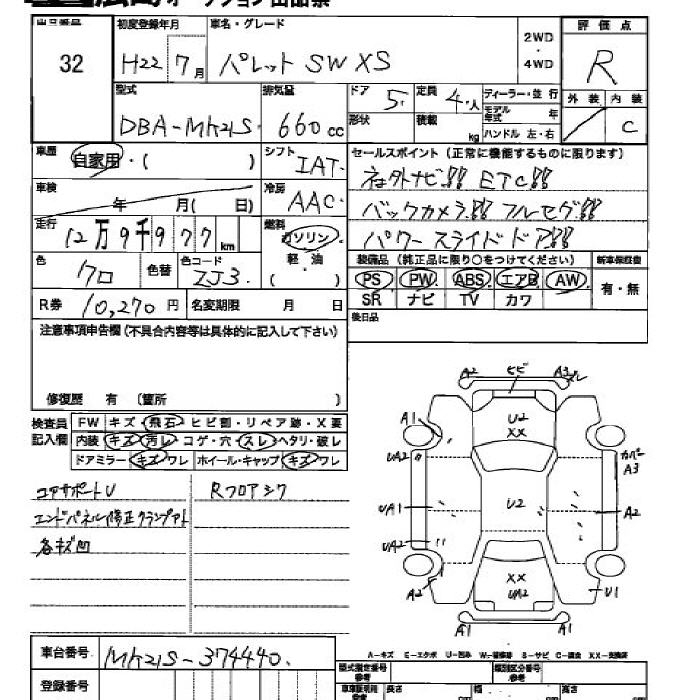 オークション出品票
出品番号
32
初度登録年月
H22 7月
車名・グレード
パレット SW XS
2WD
・
4WD
評価点
R
外装 内装
C
型式
DBA-MK21S
排気量
660 cc
ドア
5
定員
4人
形状
積載
kg
ディーラー・並行
モデル年式 年
ハンドル 左・右
車歴
自家用・( )
シフト
IAT
車検
年 月( 日)
冷房
AAC
走行
12万9千977km
燃料
ガソリン・
軽・油
( )
色
クロ
色替
色コード
ZJ3
R券
10,270円
名変期限 月 日
セールスポイント (正常に機能するものに限ります)
社外ナビ!! ETC!!
バックカメラ!! フルセグ!!
パワースライドドア!!
装備品 (純正品に限り○をつけてください)
新車保証書
PS PW ABS エアB AW
SR ナビ TV カワ
有・無
後日品
注意事項申告欄(不具合内容等は具体的に記入して下さい)
修復歴 有 (箇所 )
検査員
記入欄
FW キズ・飛石・ヒビ割・リペア跡・X要
内装 キズ・汚レ・コゲ・穴・スレ・ヘタリ・破レ
ドアミラー キズ・ワレ ホイール・キャップ キズ・ワレ
コアサポートU
Rフロアシワ
エンドパネル修正クランプアト
各キズ凹
A2 ヒビ A3 スレ
A1
U2
XX
UA2
カバー
A3
UA1
U2
A2
UA2
A2
XX
UA2
U1
A1 A1
A-キズ E-エクボ U-凹み W-補修跡 S-サビ C-腐食 XX-交換済
車台番号
MK21S-374440
登録番号
型式指定番号
参考
類別区分番号
参考
車庫証明用
長さ
幅
高さ